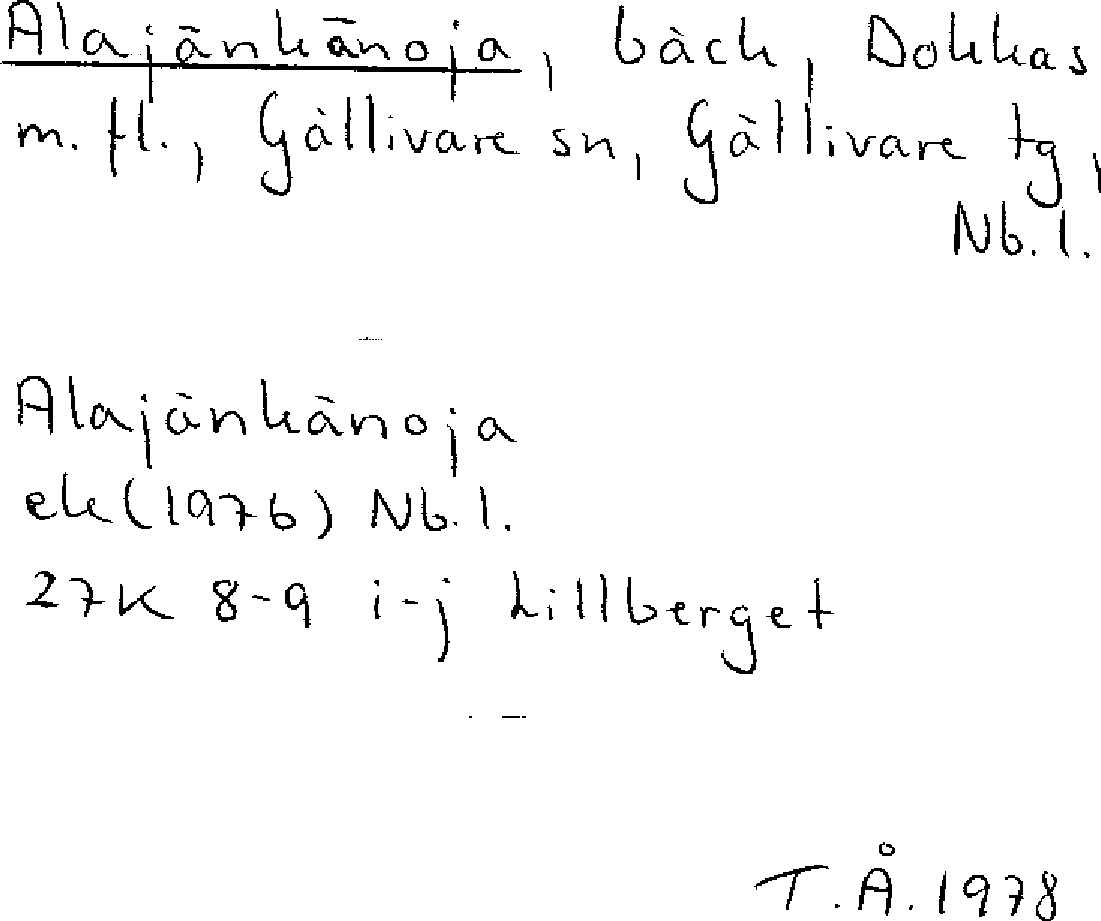 Alajänkänoja, bäck, Dokkas
m. fl., Gällivare sn, Gällivare tg,
Nb. l.
Alajänkänoja
ek (1976) Nb. l.
27K 8-9 i-j Lillberget
T. Å. 1978